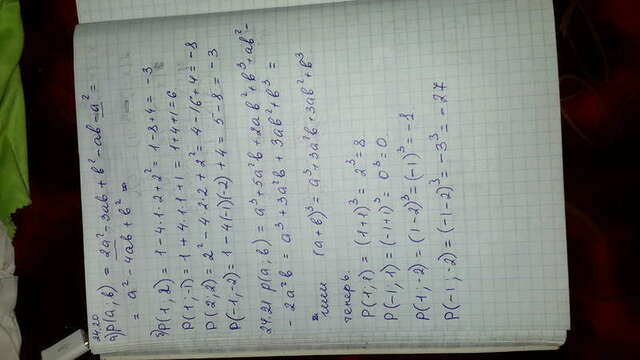 24.20
a) p(a, b) = 2a² - 3ab + b² - ab - a² =
= a² - 4ab + b² =
б) p(1, 2) = 1 - 4·1·2 + 2² = 1 - 8 + 4 = -3
p(1, -1) = 1 + 4·1·1 + 1 = 1 + 4 + 1 = 6
p(2, 2) = 2² - 4·2·2 + 2² = 4 - 16 + 4 = -8
p(-1, -2) = 1 - 4(-1)(-2) + 4 = 5 - 8 = -3
24.21 p(a, b) = a³ + 5a²b + 2ab² + b³ + ab² -
- 2a²b = a³ + 3a²b + 3ab² + b³ =
(a + b)³ = a³ + 3a²b + 3ab² + b³
теперь
P(1, 1) = (1+1)³ = 2³ = 8
P(-1, 1) = (-1+1)³ = 0³ = 0
P(1, -2) = (1-2)³ = (-1)³ = -1
P(-1, -2) = (-1-2)³ = -3³ = -27